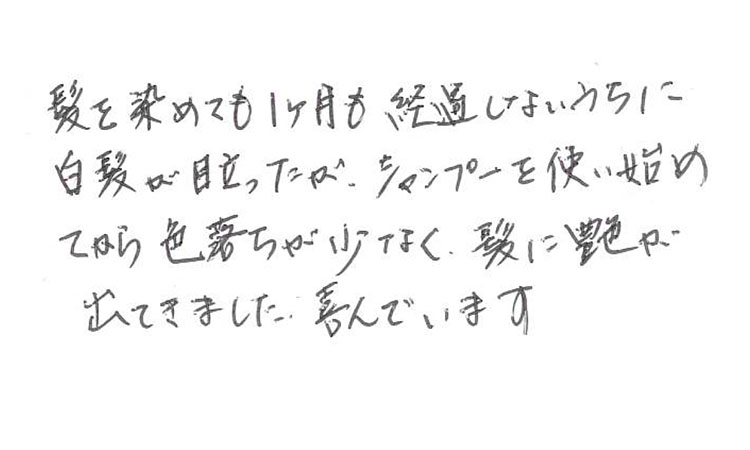 髪を染めても1ヶ月も経過しないうちに
白髪が目立ったが、シャンプーを使い始め
てから色落ちが少なく、髪に艶が
出てきました。喜んでいます